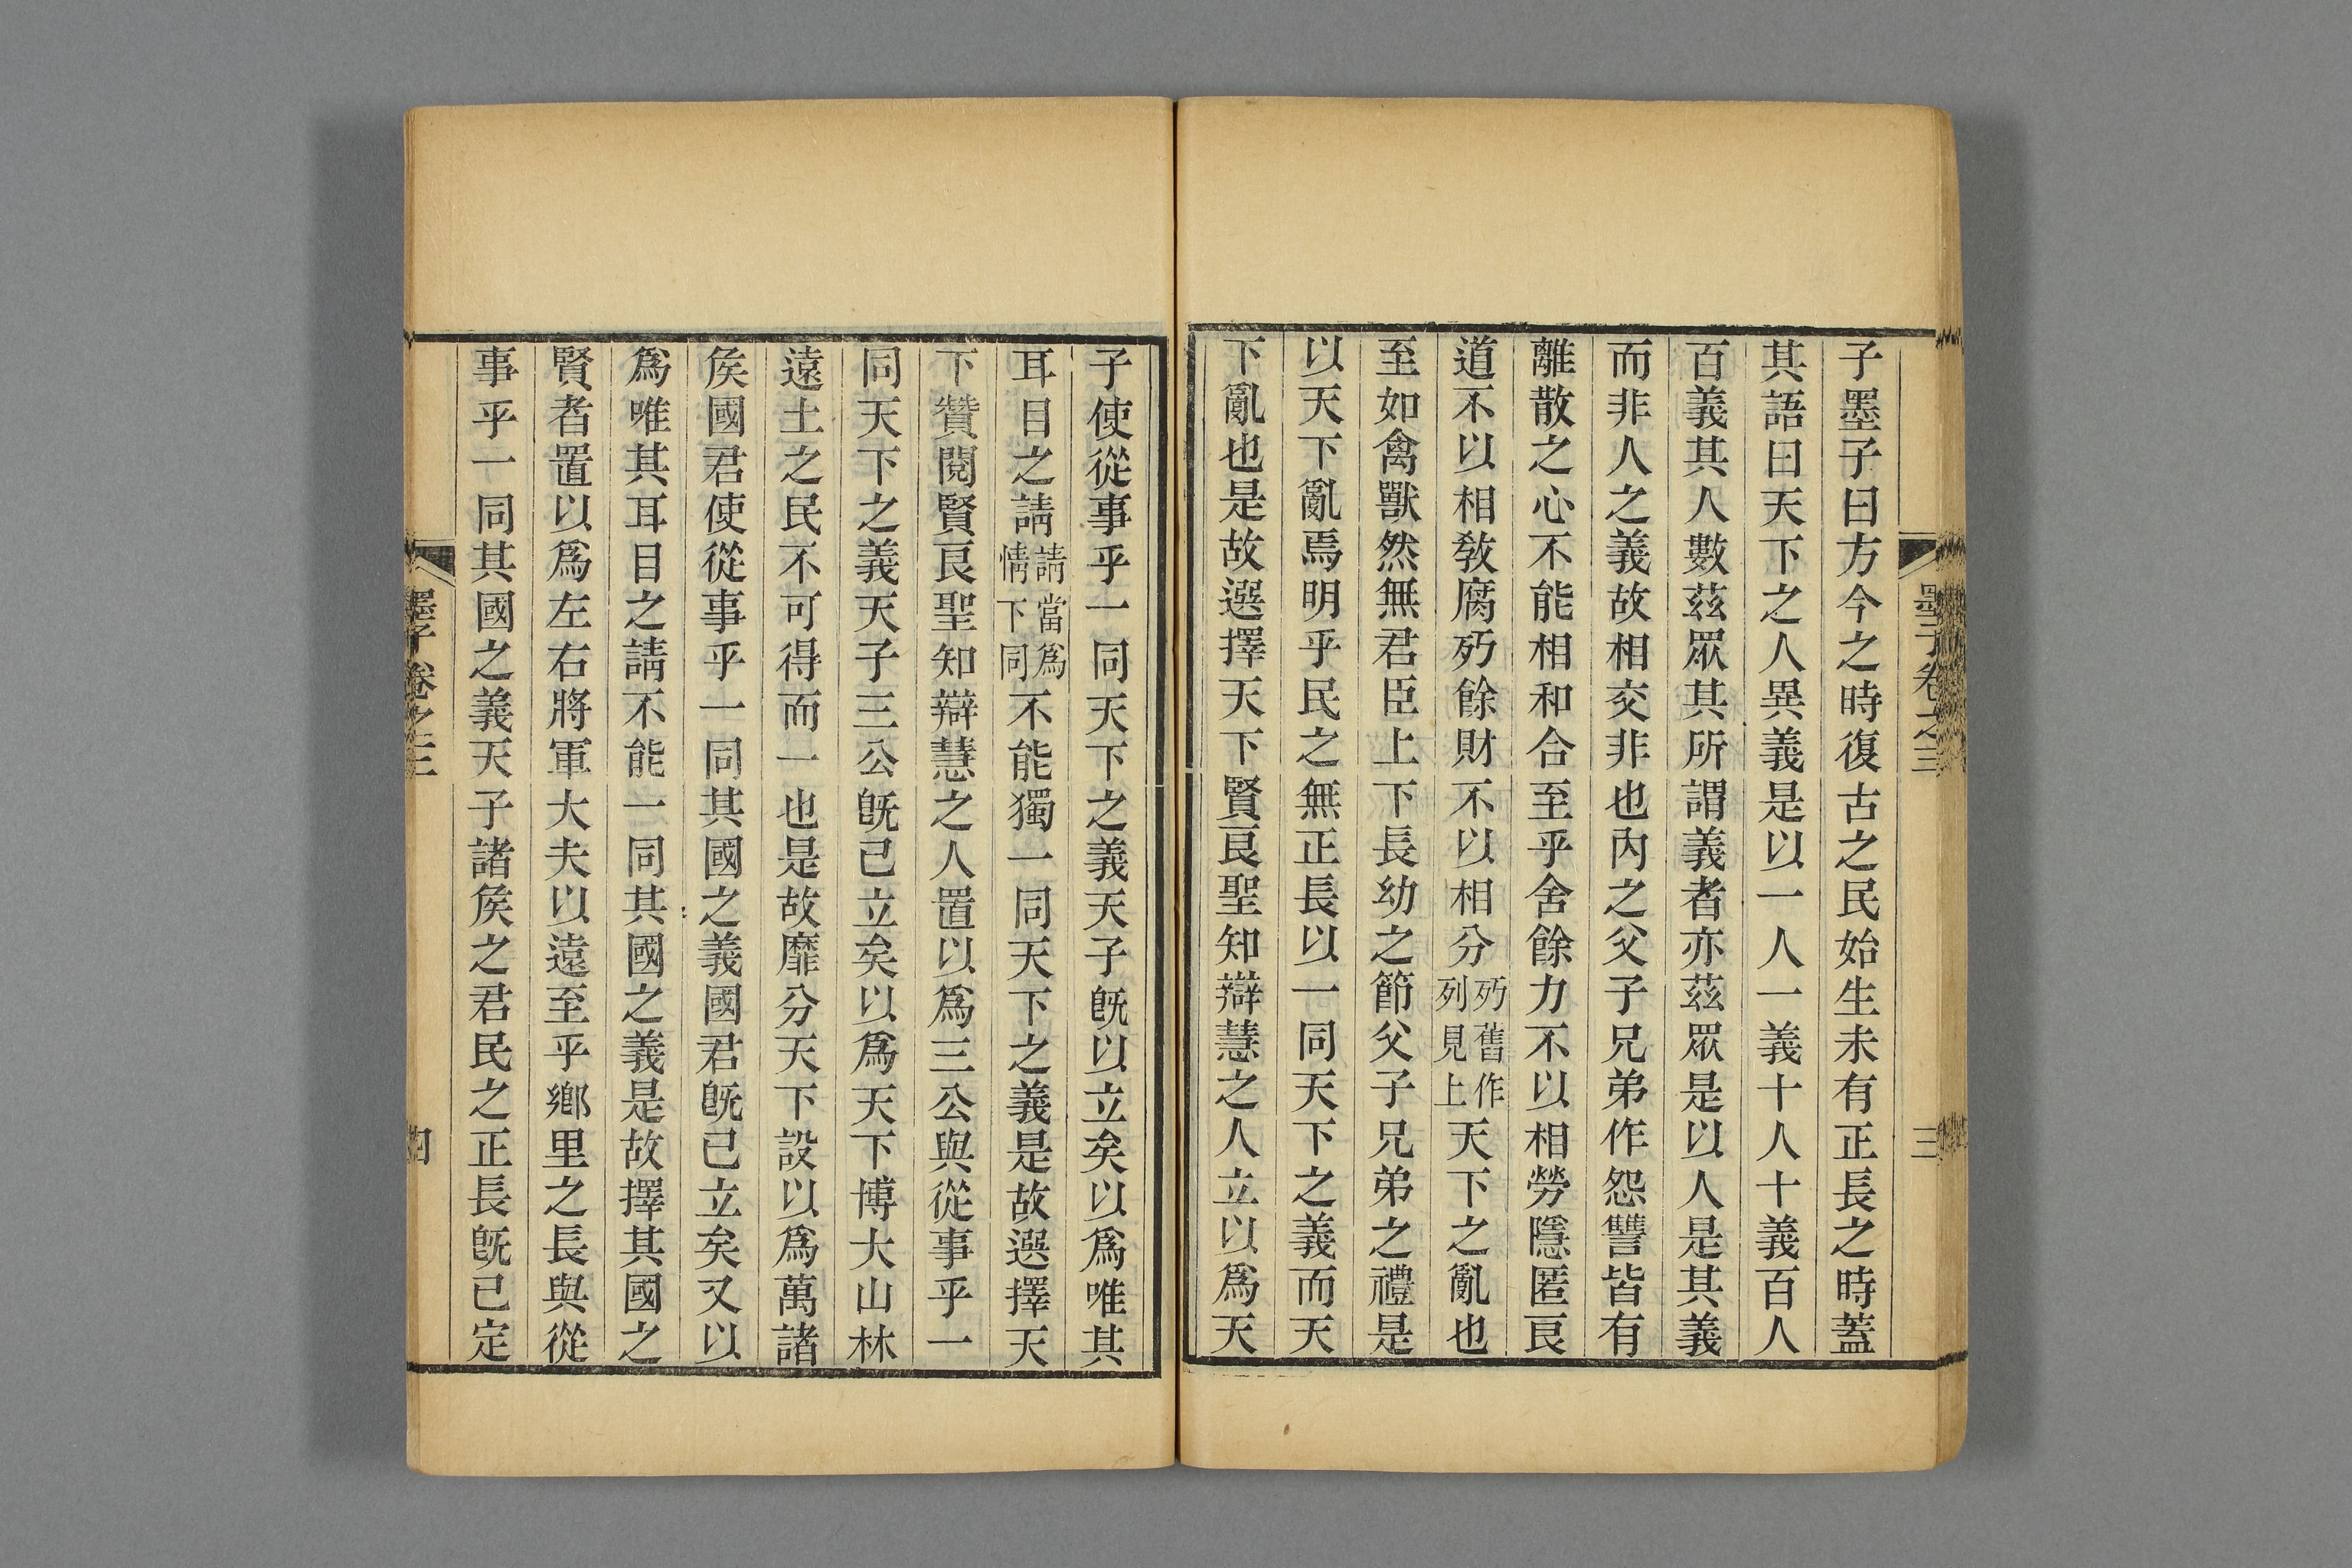 墨子卷之三
三
子墨子曰方今之時復古之民始生未有正長之時蓋
其語曰天下之人異義是以一人一義十人十義百人
百義其人數茲眾其所謂義者亦茲眾是以人是其義
而非人之義故相交非也內之父子兄弟作怨讐皆有
離散之心不能相和合至乎舍餘力不以相勞隱匿良
道不以相敎腐𣦸餘財不以相分𣦸舊作列見上天下之亂也
至如禽獸然無君臣上下長幼之節父子兄弟之禮是
以天下亂焉明乎民之無正長以一同天下之義而天
下亂也是故選擇天下賢良聖知辯慧之人立以爲天
子使從事乎一同天下之義天子旣以立矣以爲唯其
耳目之請請當爲情下同不能獨一同天下之義是故選擇天
下贊閱賢良聖知辯慧之人置以爲三公與從事乎一
同天下之義天子三公旣已立矣以爲天下博大山林
遠土之民不可得而一也是故靡分天下設以爲萬諸
矦國君使從事乎一同其國之義國君旣已立矣又以
爲唯其耳目之請不能一同其國之義是故擇其國之
賢者置以爲左右將軍大夫以遠至乎鄉里之長與從
事乎一同其國之義天子諸矦之君民之正長旣已定
墨子卷之三
四